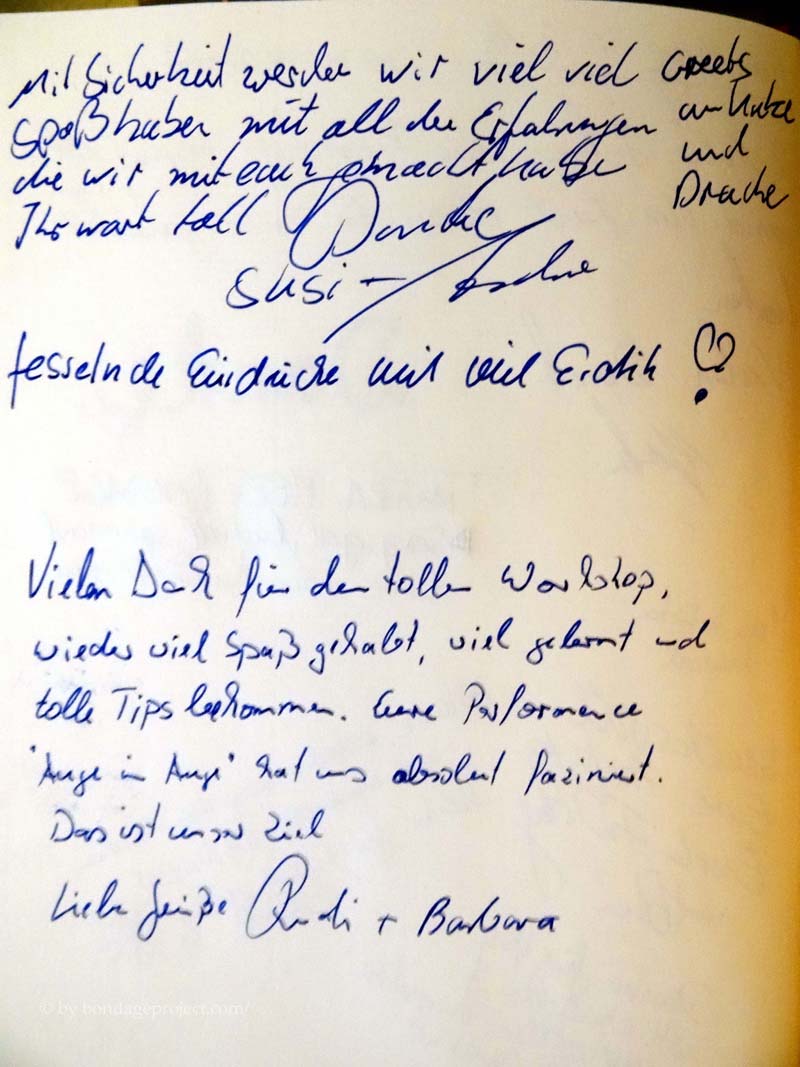 Mit Sicherheit werden wir viel viel
Spaß haben mit all den Erfahrungen
die wir mit euch gemacht habe
Ihr wart toll Danke
Greets
an Katze
und
Drache
Susi -
fesselnde Eindrücke mit viel Erotik !
Vielen Dank für den tollen Workshop,
wieder viel Spaß gehabt, viel gelernt und
tolle Tips bekommen. Eure Performance
"Auge in Auge" hat uns absolut fasziniert.
Das ist unser Ziel
Liebe Grüße Rudi + Barbara
© by bondageproject.com/